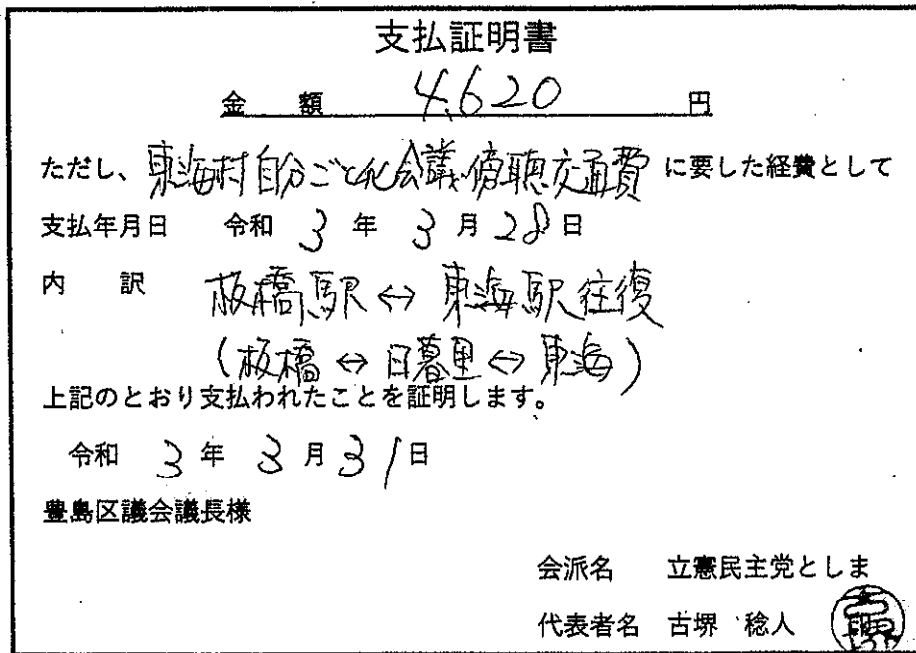 支払証明書
金 額 4,620 円
ただし、東海村自分ごと化会議傍聴交通費 に要した経費として
支払年月日 令和 3 年 3 月 28 日
内 訳 板橋駅 ↔ 東海駅 往復
(板橋 ↔ 日暮里 ↔ 東海)
上記のとおり支払われたことを証明します。
令和 3 年 3 月 31 日
豊島区議会議長様
会派名 立憲民主党としま
代表者名 古堺 稔人